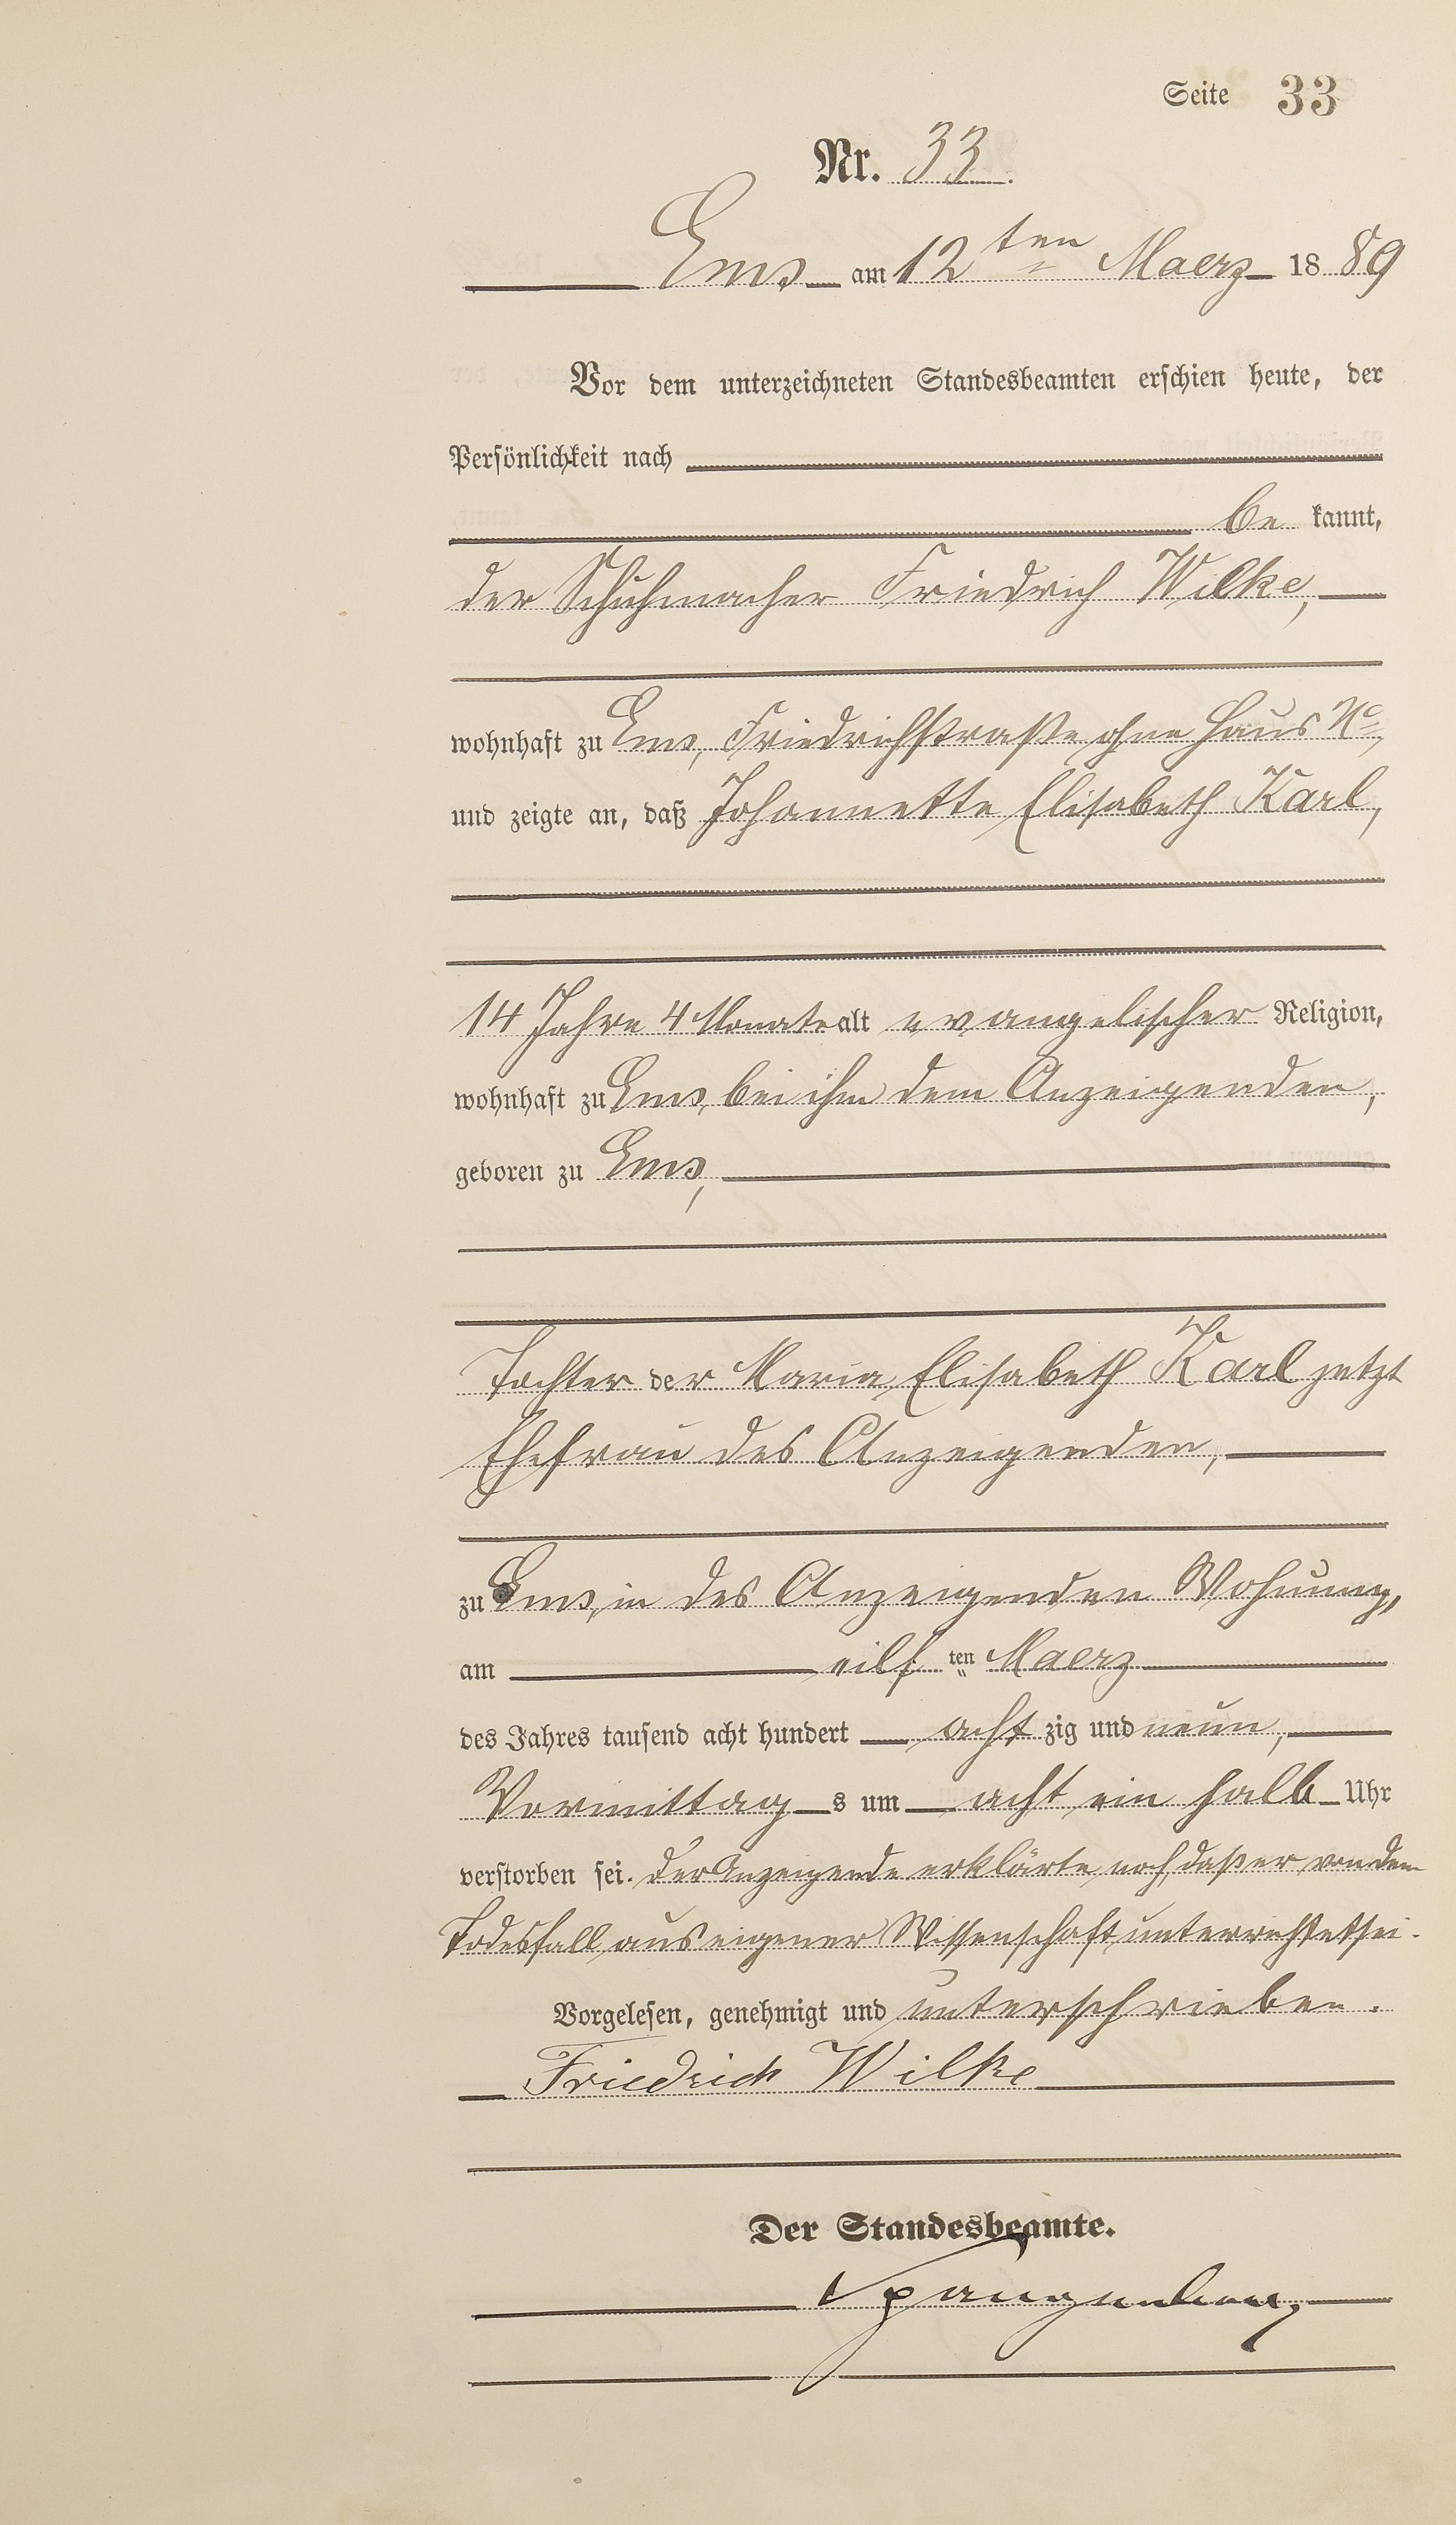 Seite 33
Nr. 33.
Ems am 12ten Maerz 1889
Vor dem unterzeichneten Standesbeamten erschien heute, der
Persönlichkeit nach
be kannt,
der Schuhmacher Friedrich Wilke,
wohnhaft zu Ems, Friedrichstraße ohne Haus No
und zeigte an, daß Johannette Elisabeth Karl,
14 Jahre 4 Monate alt evangelischer Religion,
wohnhaft zu Ems, bei ihm dem Anzeigenden,
geboren zu Ems,
Tochter der Maria Elisabeth Karl jetzt
Ehefrau des Anzeigenden,
zu Ems, in des Anzeigenden Wohnung,
am eilf ten Maerz
des Jahres tausend acht hundert acht zig und neun,
Vormittag s um acht ein halb Uhr
verstorben sei. Der Anzeigende erklärte noch, daß er von dem
Todesfall aus eigener Wissenschaft unterrichtet sei.
Vorgelesen, genehmigt und unterschrieben.
Friedrich Wilke
Der Standesbeamte.
Spangenberg